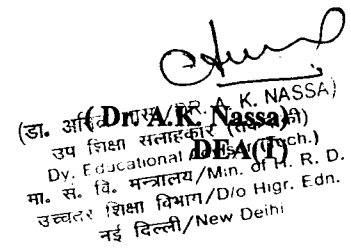 ( Dr. A.K. Nassa)
DEA(T)
(डा. /DR. A. K. NASSA)
उप शिक्षा सलाहकार
Dy. Educational
मा. सं. वि. मन्त्रालय/Min. of H. R. D.
उच्चतर शिक्षा विभाग/D/o Higr. Edn.
नई दिल्ली/New Delhi